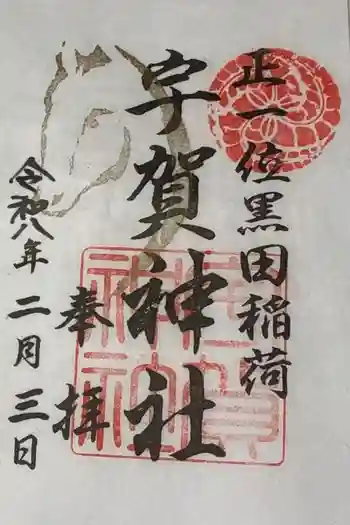 正一位黒田稲荷
宇賀神社
奉拝
令和八年二月三日